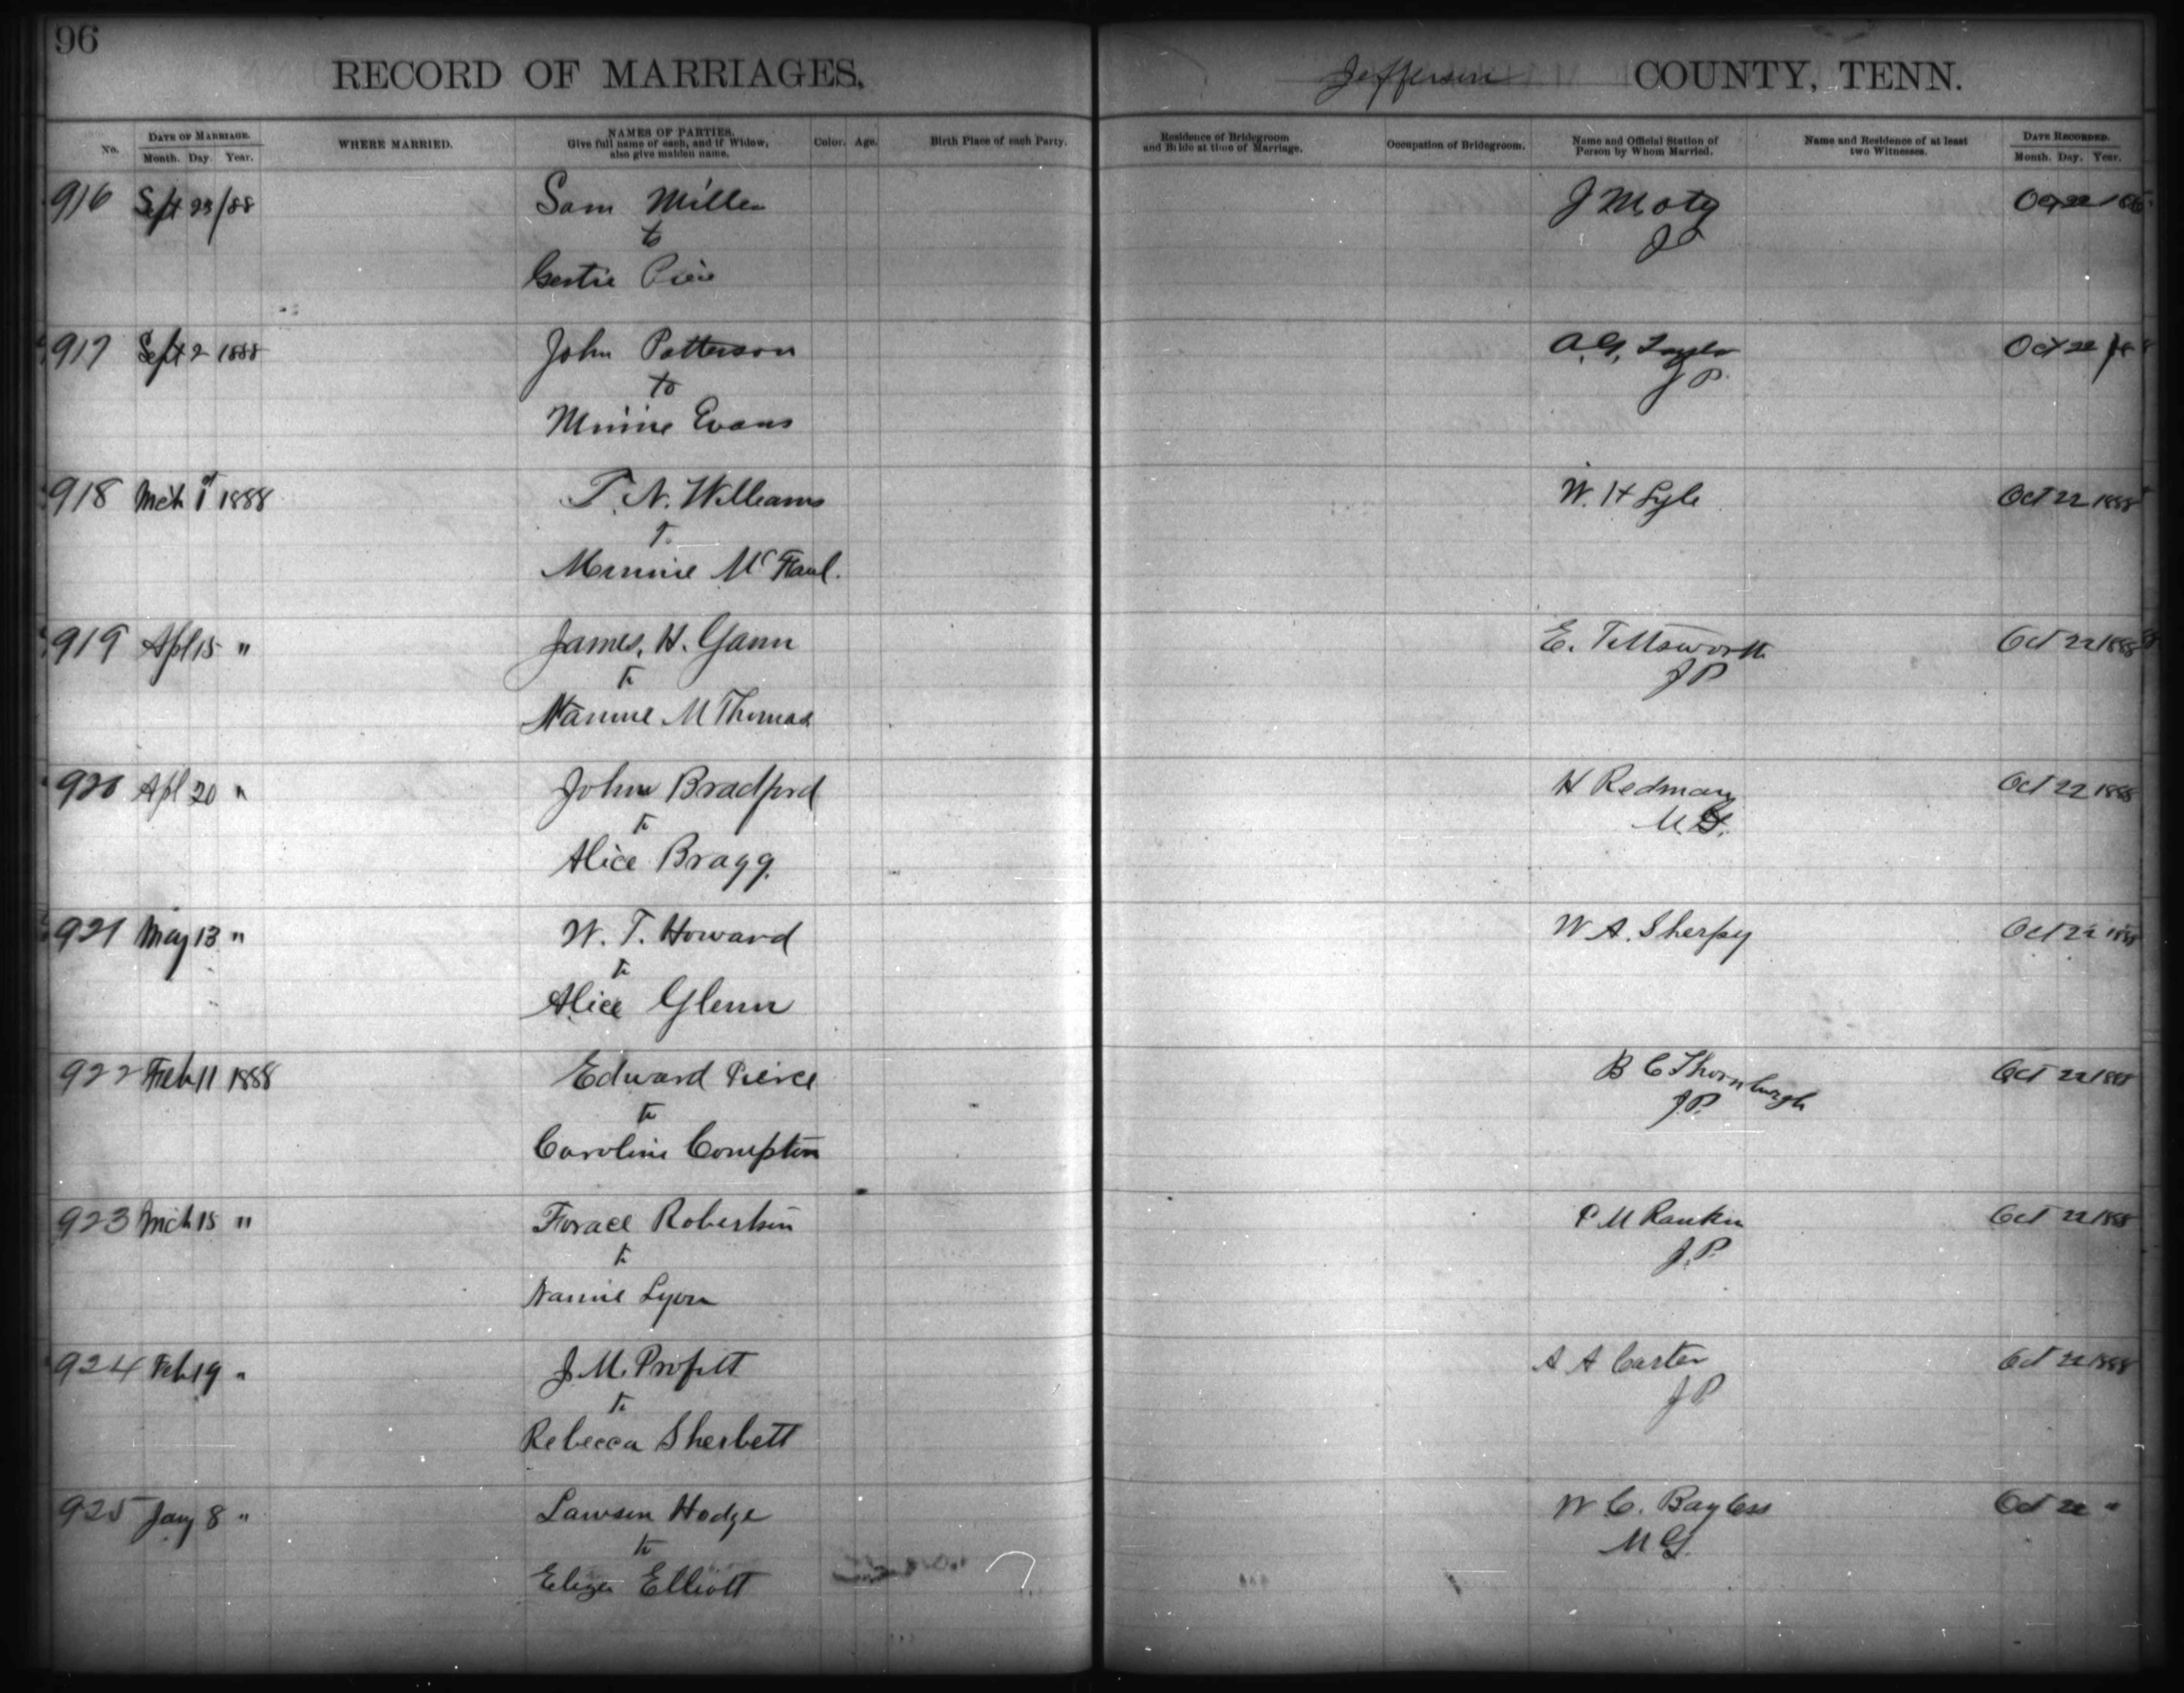 96
RECORD OF MARRIAGES.
Jefferson COUNTY, TENN.
No.
DATE OF MARRIAGE.
Month. Day. Year.
WHERE MARRIED.
NAMES OF PARTIES.
Give full name of each, and if Widow,
also give maiden name.
Color.
Age.
Birth Place of each Party.
Residence of Bridegroom
and Bride at time of Marriage.
Occupation of Bridegroom.
Name and Official Station of
Person by Whom Married.
Name and Residence of at least
two Witnesses.
DATE RECORDED.
Month. Day. Year.
916 Sept 23/88 Sam Miller J Moty
to J P
Gertie
917 Sept 2 1888 John Patterson A. G. Oct 22
to J P.
Minnie Evans
918 Mch 1st 1888 T. N. Williams W. H Lyle Oct 22 1888
T.
Minnie
919 Apl 15 " James. H. Gann E. Tittsworth Oct 22 1888
To J P
Nannie M Thomas
920 Apl 20 " John Bradford H Redman Oct 22 1888
To M. G.
Alice Bragg.
921 May 13 " W. T. Howard W A. Sherfey Oct 22 1888
To
Alice Glenn
922 Feb 11 1888 Edward Pierce B C Thornburgh Oct 22 1888
To J.P.
Caroline Compton
923 Mch 15 " Horace Robertson P M Rankin Oct 22 1888
To J.P.
Nannie Lyon
924 Feb 19 " J. M. Profitt A A Carter Oct 22 1888
To J P
Rebecca Sherbett
925 Jany 8 " Lawson Hodge W C. Bayless Oct 22 "
To M G.
Eliza Elliott